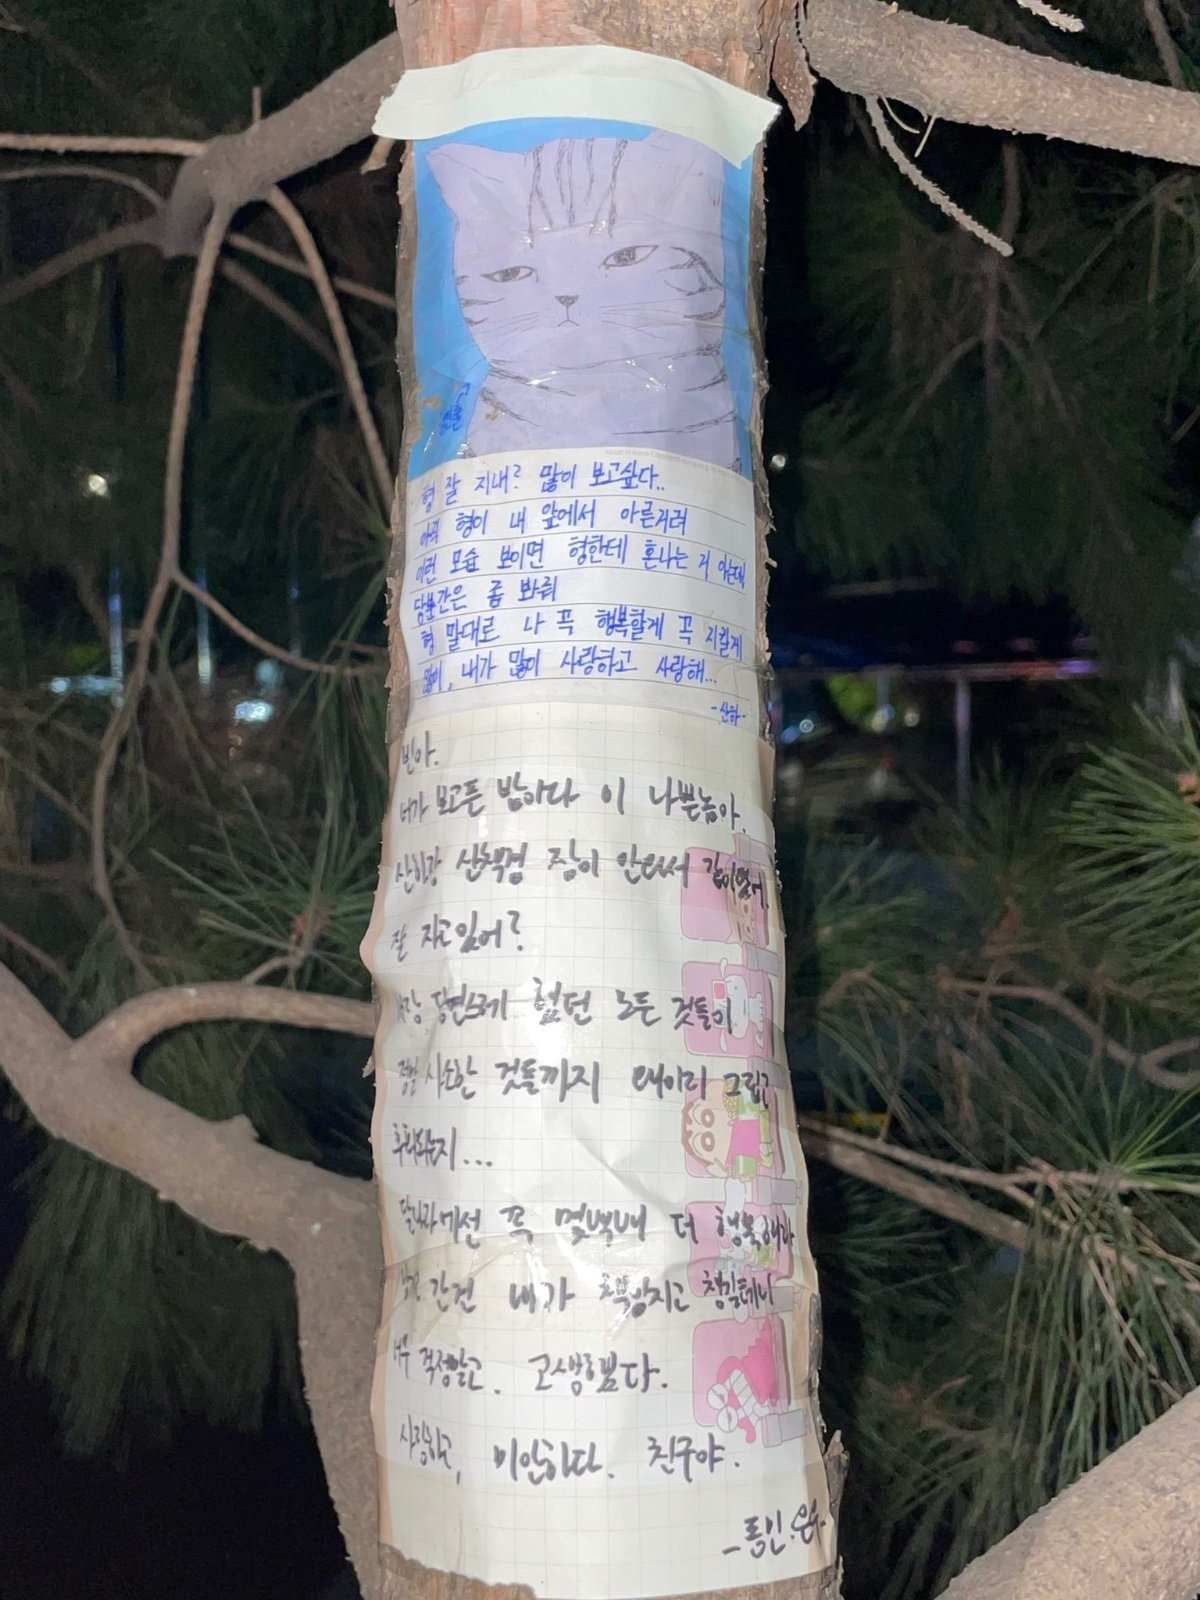 형 잘 지내? 많이 보고싶다..
아직 형이 내 앞에서 아른거려
이런 모습 보이면 형한테 혼나는 거 아는데
당분간은 좀 봐줘
형 말대로 나 꼭 행복할게 꼭 지킬게
많이, 내가 많이 사랑하고 사랑해...
-산하-
빈아.
너가 보고픈 밤이다 이 나쁜놈아.
산하랑 산책겸 잠이 안와서 같이왔어.
잘 자고있어?
당연스레 했던 모든 것들이
정말 사소한 것들까지 왜이리 그립고
후회되는지...
달나라에선 꼭 몇백배 더 행복해라
남은 간건 내가 책임지고 챙길테니
너무 걱정말고. 고생했다.
사랑하고, 미안하다. 친구야.